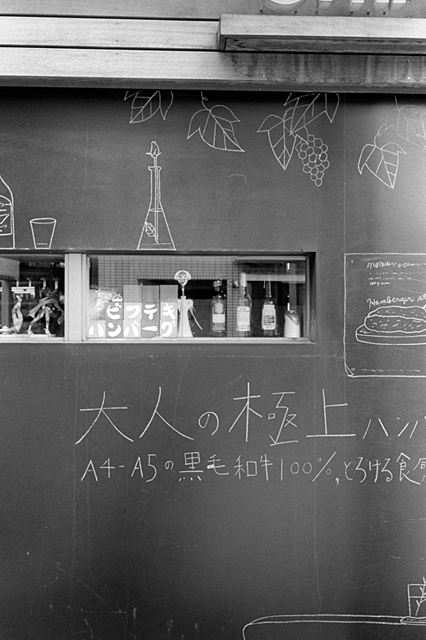 ビフテキ
ハンバーグ
Hamberger
大人の極上ハンバ
A4-A5の黒毛和牛100%、とろける食感